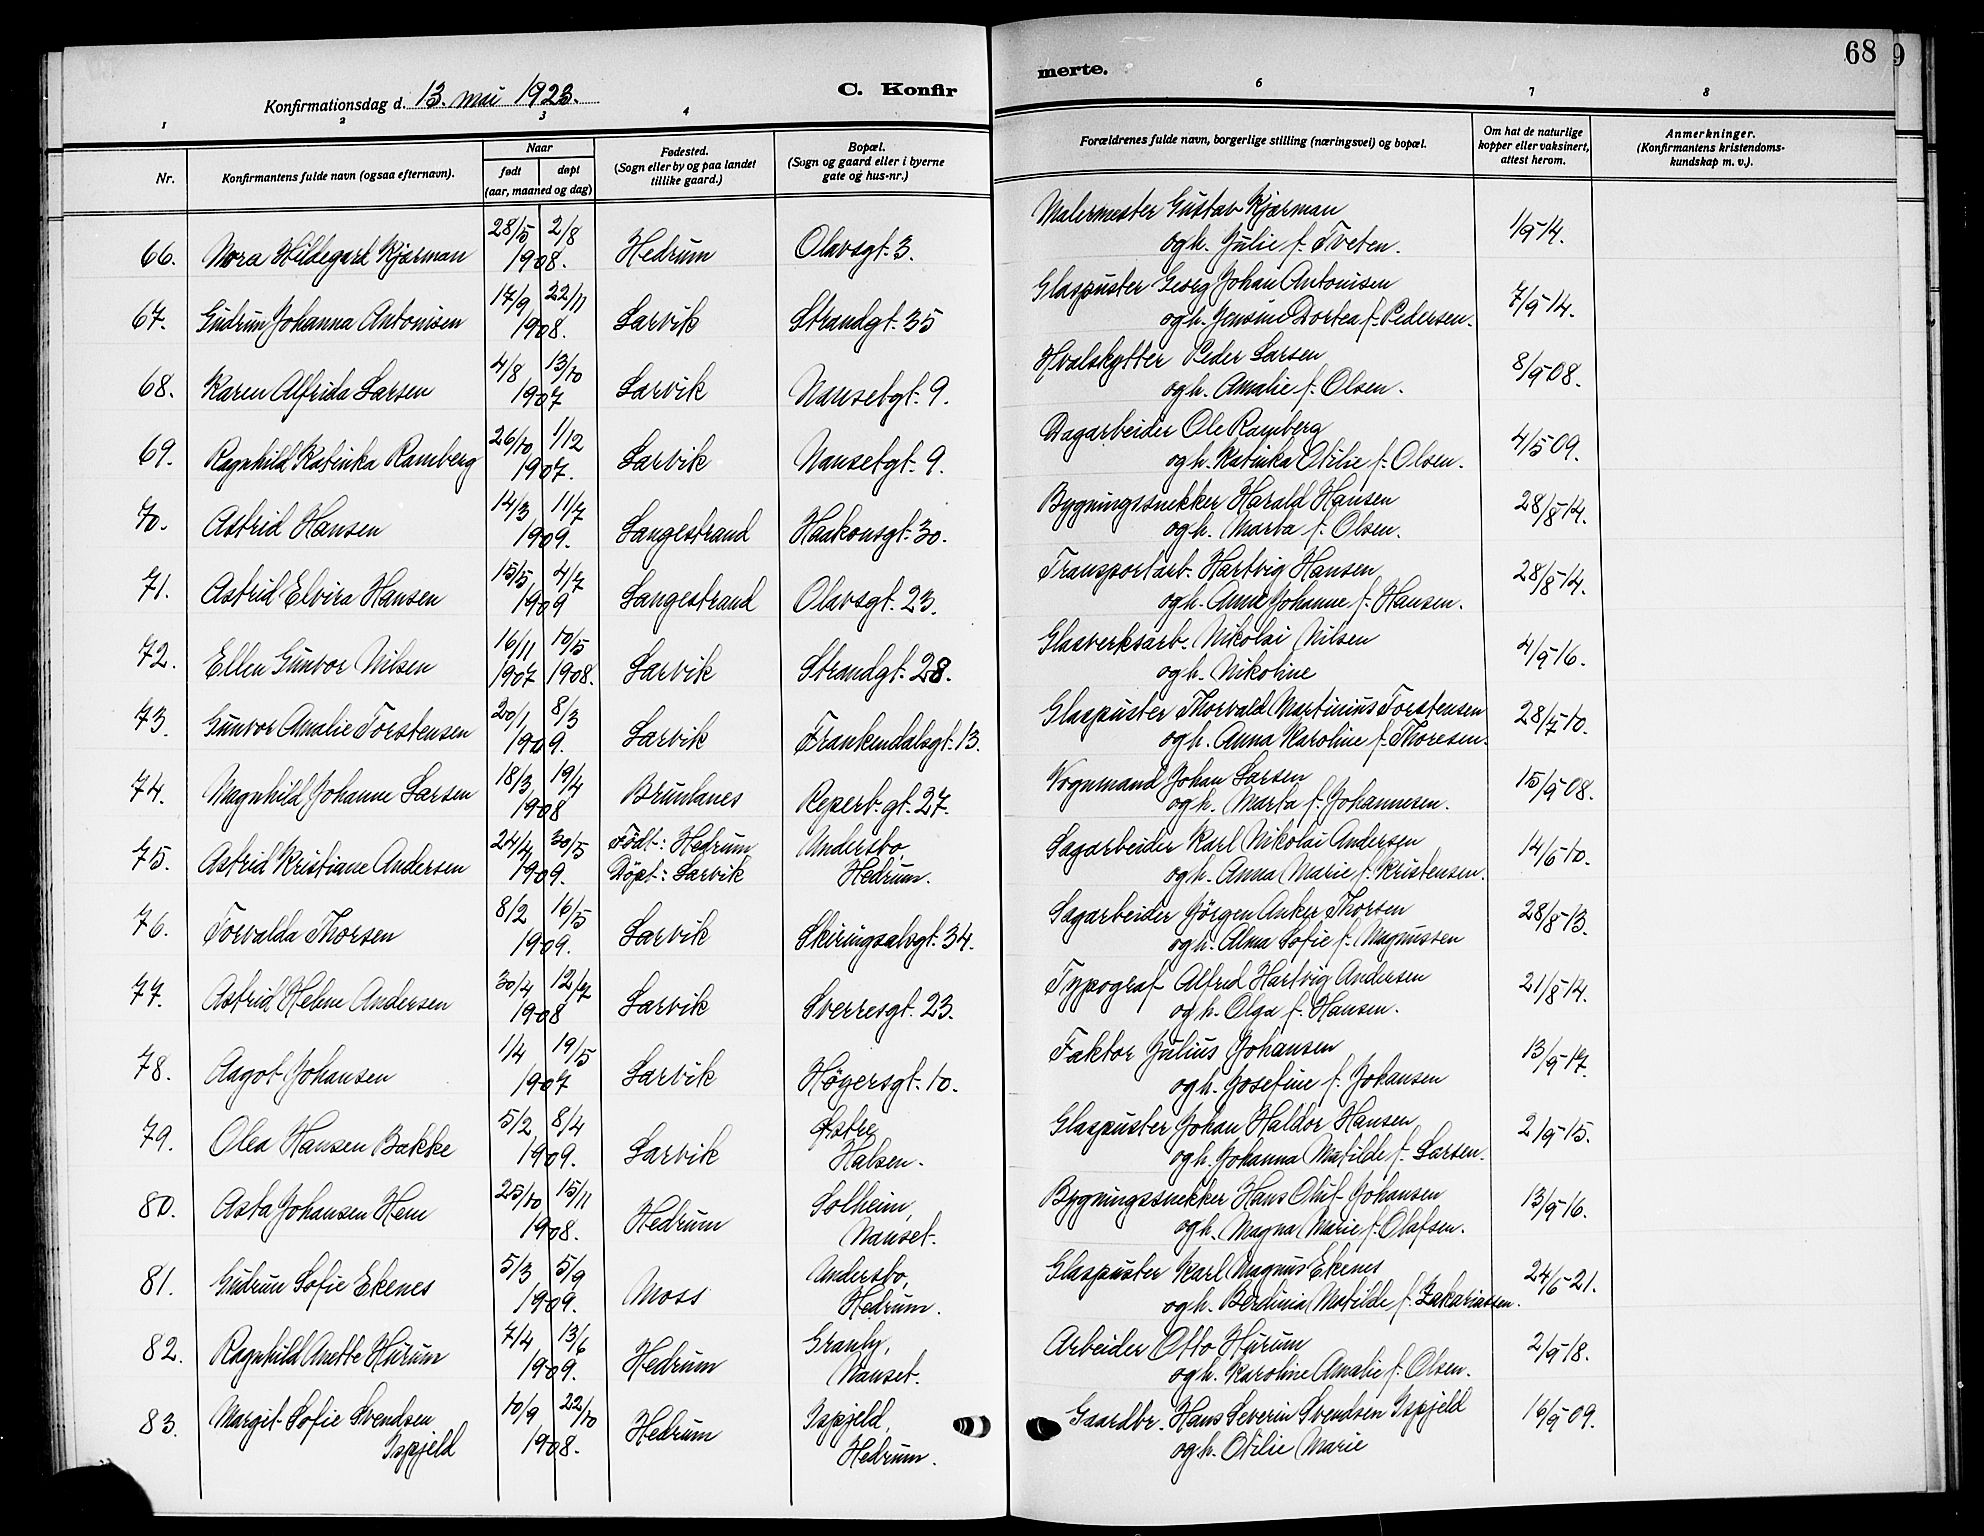 68
9
Konfirmationsdag d. 13. mai 1923.
C. Konfir
merte.
1 2 3 4 6 7 8
Nr.
Konfirmantens fulde navn (ogsaa efternavn).
Naar
født
døpt
(aar, maaned og dag)
Fødested.
(Sogn eller by og paa landet
tillike gaard.)
Bopæl.
(Sogn og gaard eller i byerne
gate og hus-nr.)
Forældrenes fulde navn, borgerlige stilling (næringsvei) og bopæl.
Om hat de naturlige
kopper eller vaksinert,
attest herom.
Anmerkninger.
(Konfirmantens kristendoms-
kundskap m. v.).
28/5 2/8 Malermester Gustav Kjærman
66. Nora Hildegard Kjærman 1908. Hedrum Olavsgt. 3. og h. Julie f. Tveten. 1/9-14.
17/9 22/11 Glaspuster Georg Johan Antonisen
67. Gudrun Johanna Antonisen 1908. Larvik Strandgt. 35 og h. Jensine Dortea f. Pedersen. 7/9-14.
4/8 13/10 Hvalskytter Peder Larsen
68. Karen Alfrida Larsen 1907 Larvik Nansetgt. 9. og h. Amalie f. Olsen. 8/9-08.
26/10 1/12 Dagarbeider Ole Ramberg
69. Ragnhild Katinka Ramberg 1907. Larvik Nansetgt. 9. og h. Katinka Otilie f. Olsen. 4/5 09.
14/3 11/7 Bygningssnekker Harald Hansen
70. Astrid Hansen 1909. Langestrand Haakonsgt. 30. og h. Marta f. Olsen. 28/8-14.
15/5 4/7 Transportarb. Hartvig Hansen
71. Astrid Elvira Hansen 1909 Langestrand Olavsgt. 23. og h. Anna Johanne f. Hansen. 28/8-14.
16/11 10/5 Glasverksarb. Nikolai Nilsen
72. Ellen Gunvor Nilsen 1907 1908. Larvik Strandgt. 28. og h. Nikoline 4/9-16.
20/1 8/3 Glaspuster Thorvald Martinius Torstensen
73. Gunvor Amalie Torstensen 1909. Larvik Frankendalsgt. 13. og h. Anna Karoline f. Thoresen. 28/7-10.
18/3 19/4 Vognmand Johan Larsen
74. Magnhild Johanne Larsen 1908 Brunlanes Reperb. gt. 27. og h. Marta f. Johannesen. 15/9-08.
24/4 30/5 Födt: Hedrum Andersbo, Sagarbeider Karl Nikolai Andersen
75. Astrid Kristiane Andersen 1909. Döpt: Larvik Hedrum. og h. Anna Marie f. Kristensen. 14/6-10.
8/2 16/5 Sagarbeider Jörgen Anker Thorsen
76. Torvalda Thorsen 1909. Larvik Skiringsalsgt. 34. og h. Alma Sofie f. Magnussen 28/8-13.
30/4 12/7 Typograf Alfred Hartvig Andersen
77. Astrid Helene Andersen 1908 Larvik Sverresgt. 23. og h. Olga f. Hansen. 21/8-14.
1/4 19/5 Faktor Julius Johansen
78. Aagot Johansen 1907 Larvik Høyersgt. 10. og h. Josefine f. Johansen 13/9-17.
5/2 8/4 Østre Glaspuster Johan Haldor Hansen
79. Olea Hansen Bakke 1909. Larvik Halsen. og h. Johanna Matilde f. Larsen. 2/9-15.
25/10 15/11 Solheim, Bygningssnekker Hans Oluf Johansen
80. Asta Johansen Hem 1908. Hedrum Nanset. og h. Magna Marie f. Olafsen. 13/9-16.
5/3 5/9 Andersbo, Glaspuster Karl Magnus Ekenes
81. Gudrun Sofie Ekenes 1909. Moss Hedrum. og h. Berdinia Matilde f. Zakariassen. 24/6-21.
7/4 13/6 Granly, Arbeider Otto Hurum
82. Ragnhild Anette Hurum 1909. Hedrum Nanset. og h. Karoline Amalie f. Olsen. 2/9-18.
83. Margit Sofie Svendsen 10/9 22/10 Ispjeld, Gaardbr. Hans Severin Svendsen Ispjeld
Ispjeld 1908. Hedrum Hedrum. og h. Otilie Marie 16/9-09.